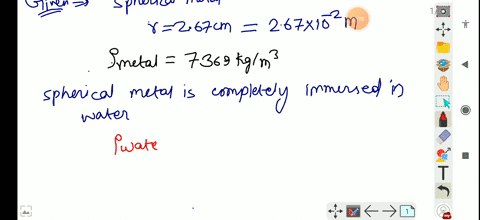 Given => spherical metal
r = 2.67cm = 2.67×10⁻² m
ρmetal = 7369 kg/m³
spherical metal is completely immersed in
water
ρwate